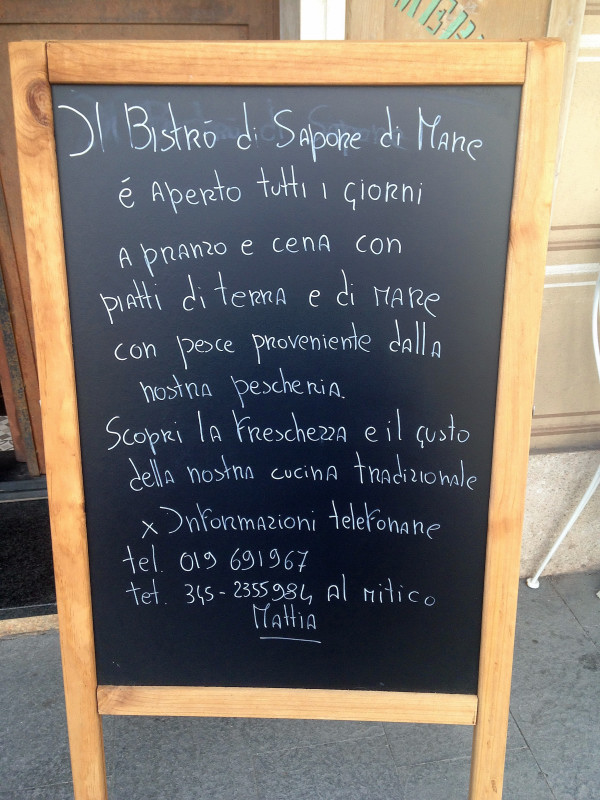 Il Bistrò di Sapore di Mare
é aperto tutti i giorni
a pranzo e cena con
piatti di terra e di mare
con pesce proveniente dalla
nostra pescheria.
Scopri la freschezza e il gusto
della nostra cucina tradizionale
x Informazioni telefonare
tel. 019 691967
tel. 345-2355984 al mitico
Mattia